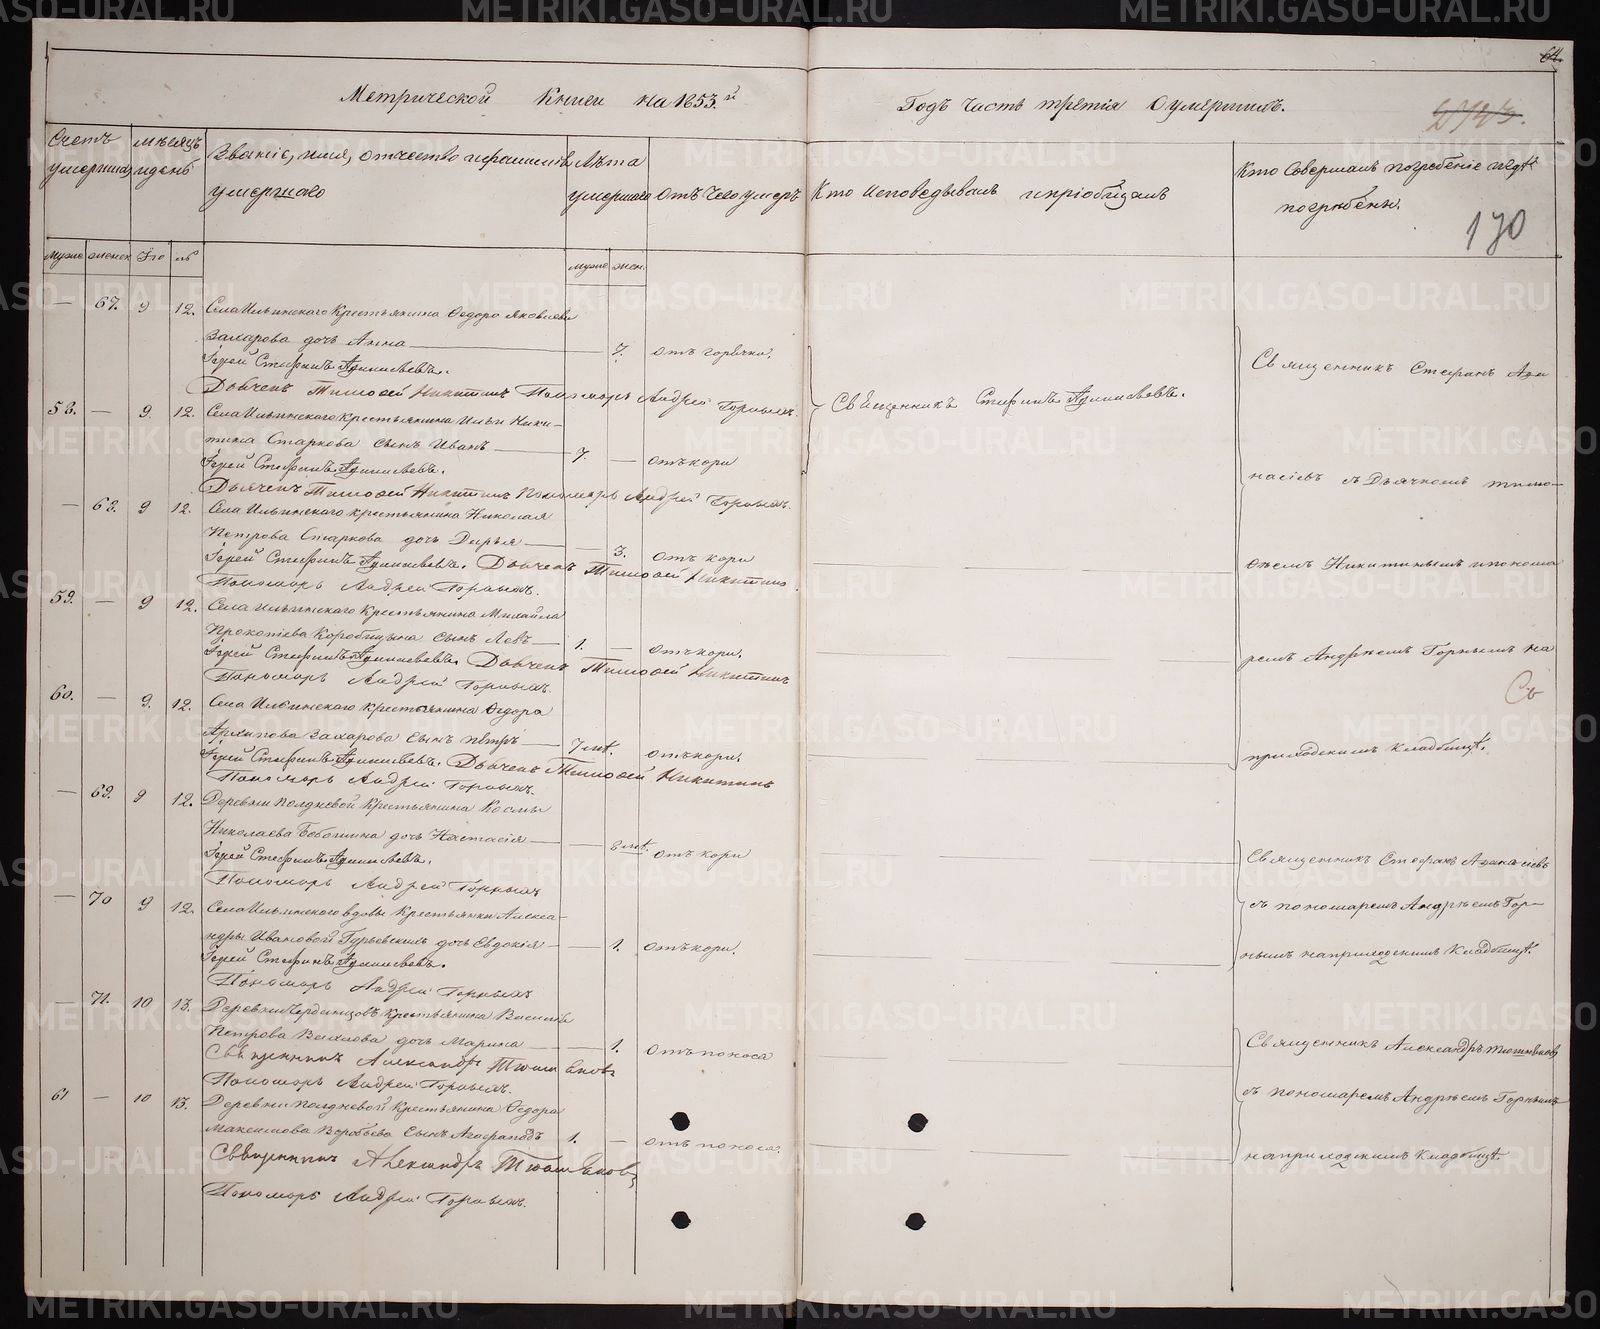 64.
Метрической Книги на 1853.й Годъ Часть третія О умершихъ.
170
Счетъ умершихъ
мѣсяцъ и день
Званіе, имя, отчество и фамилія умершаго
Лѣта умершаго
отъ Чего умеръ
Кто исповѣдывалъ и пріобщалъ
Кто Совершалъ погребеніе и гдѣ погребены.
муже женск
муже жен.
— 67. 9 12. Села Ильинскаго Крестьянина Ѳедора Яковлева
Захарова дочь Анна — 7. отъ горячки.
Іерей Стефанъ Аѳанасьевъ.
Дьячекъ Тимоѳей Никитинъ Пономарь Андрей Горныхъ.
Священникъ Стефанъ Аѳанасьевъ.
Священникъ Стефанъ Аѳа
58. — 9. 12. Села Ильинскаго Крестьянина Ильи Ники-
тина Старкова сынъ Иванъ — 7. — отъ кори
Іерей Стефанъ Аѳанасьевъ.
Дьячекъ Тимоѳей Никитинъ Пономарь Андрей Горныхъ.
насіевъ съ Дьячкомъ тимо-
— 68. 9 12. Села Ильинскаго крестьянина Николая
Петрова Старкова дочь Дарья — 3. отъ кори
Іерей Стефанъ Аѳанасьевъ. Дьячекъ Тимоѳей Никитинъ
Пономарь Андрей Горныхъ.
ѳеемъ Никитинымъ и понома
59. — 9 12. Села Ильинскаго Крестьянина Михайла
Прокопіева Коробицына сынъ Левъ — 1. — отъ кори.
Іерей Стефанъ Аѳанасьевъ. Дьячекъ Тимоѳей Никитинъ
Пономарь Андрей Горныхъ.
ремъ Андреемъ Горнымъ на
60. — 9. 12. Села Ильинскаго крестьянина Ѳедора
Архипова Захарова сынъ Петръ — 7 мѣ. отъ кори.
Іерей Стефанъ Аѳанасьевъ. Дьячекъ Тимоѳей Никитинъ
Пономарь Андрей Горныхъ.
приходскимъ кладбищѣ.
— 69. 9 12. Деревни Полдневой Крестьянина Космы
Николаева Бобошина дочь Настасія — 8 мѣ. отъ кори
Іерей Стефанъ Аѳанасьевъ.
Пономарь Андрей Горныхъ
Священникъ Стефанъ Аѳанасіевъ
— 70 9 12. Села Ильинскаго вдовы Крестьянки Алекса-
ндры Ивановой Гурьевскихъ дочь Евдокія — 1. отъ кори.
Іерей Стефанъ Аѳанасьевъ.
Пономарь Андрей Горныхъ
съ пономаремъ Андреемъ Гор-
нымъ на приходскимъ Кладбищѣ.
— 71. 10 13. Крестьянина Василья
Петрова дочь Марина — 1. отъ поноса
Священникъ Александръ
Пономарь Андрей Горныхъ.
Священникъ Александръ
61 — 10 13. Деревни Полдневой Крестьянина Ѳедора
Максимова Воробьева сынъ Агафаподъ 1. — отъ поноса.
Священникъ Александръ
Пономарь Андрей Горныхъ.
съ пономаремъ Андреемъ Горнымъ
на приходскимъ Кладбищѣ.
METRIKI.GASO-URAL.RU